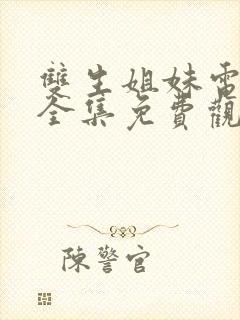 雙生姐妹電
全集免費觀
陳警官